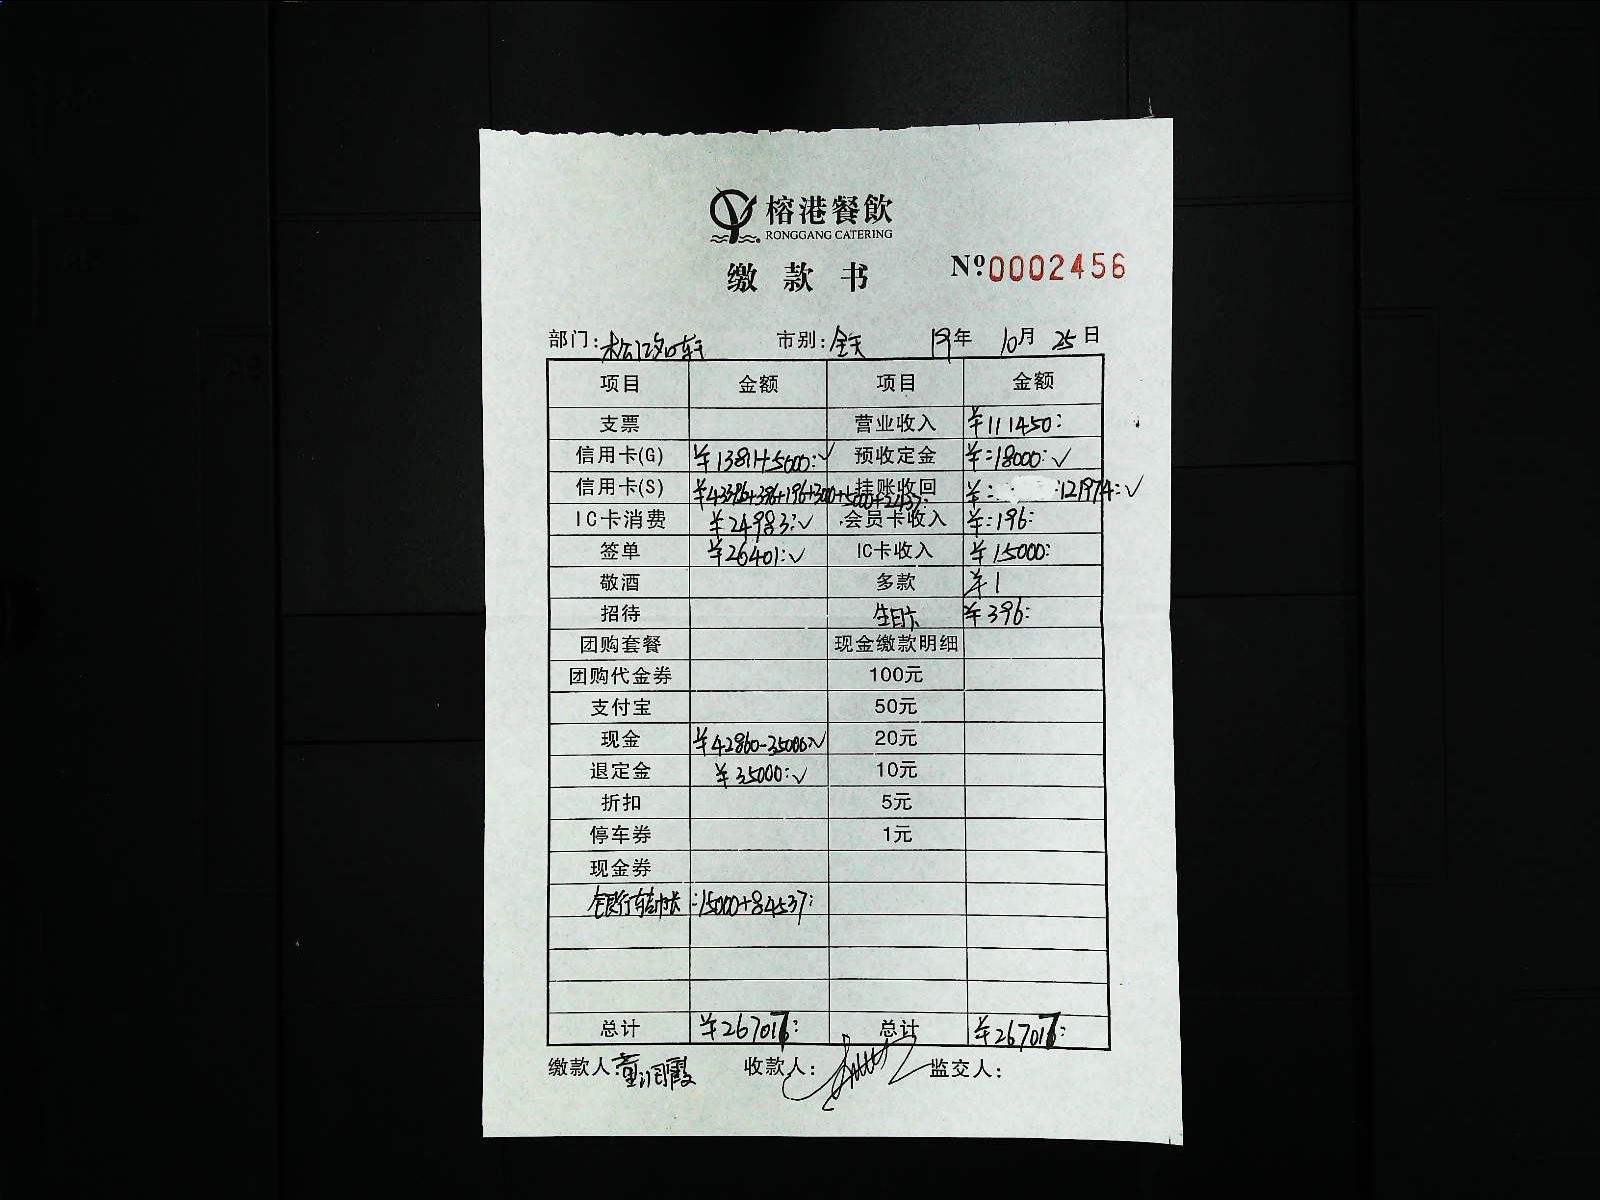 榕港餐飲
RONGGANG CATERING
缴款书 №0002456
部门: 市别:全天 19年 10月 25日
项目 金额 项目 金额
支票 营业收入 ¥111450:
信用卡(G) ¥13811+5000:✓ 预收定金 ¥:18000:✓
信用卡(S) ¥43386+396+196+300+500+2437: 挂账收回 ¥: 121974:✓
IC卡消费 ¥24983:✓ 会员卡收入 ¥:196:
签单 ¥26401:✓ IC卡收入 ¥15000:
敬酒 多款 ¥1
招待 生日卡 ¥396:
团购套餐 现金缴款明细
团购代金券 100元
支付宝 50元
现金 ¥42860-35000✓ 20元
退定金 ¥35000:✓ 10元
折扣 5元
停车券 1元
现金券
银行转帐 :15000+84537:
总计 ¥267017: 总计 ¥267017:
缴款人:童润霞 收款人: 监交人: